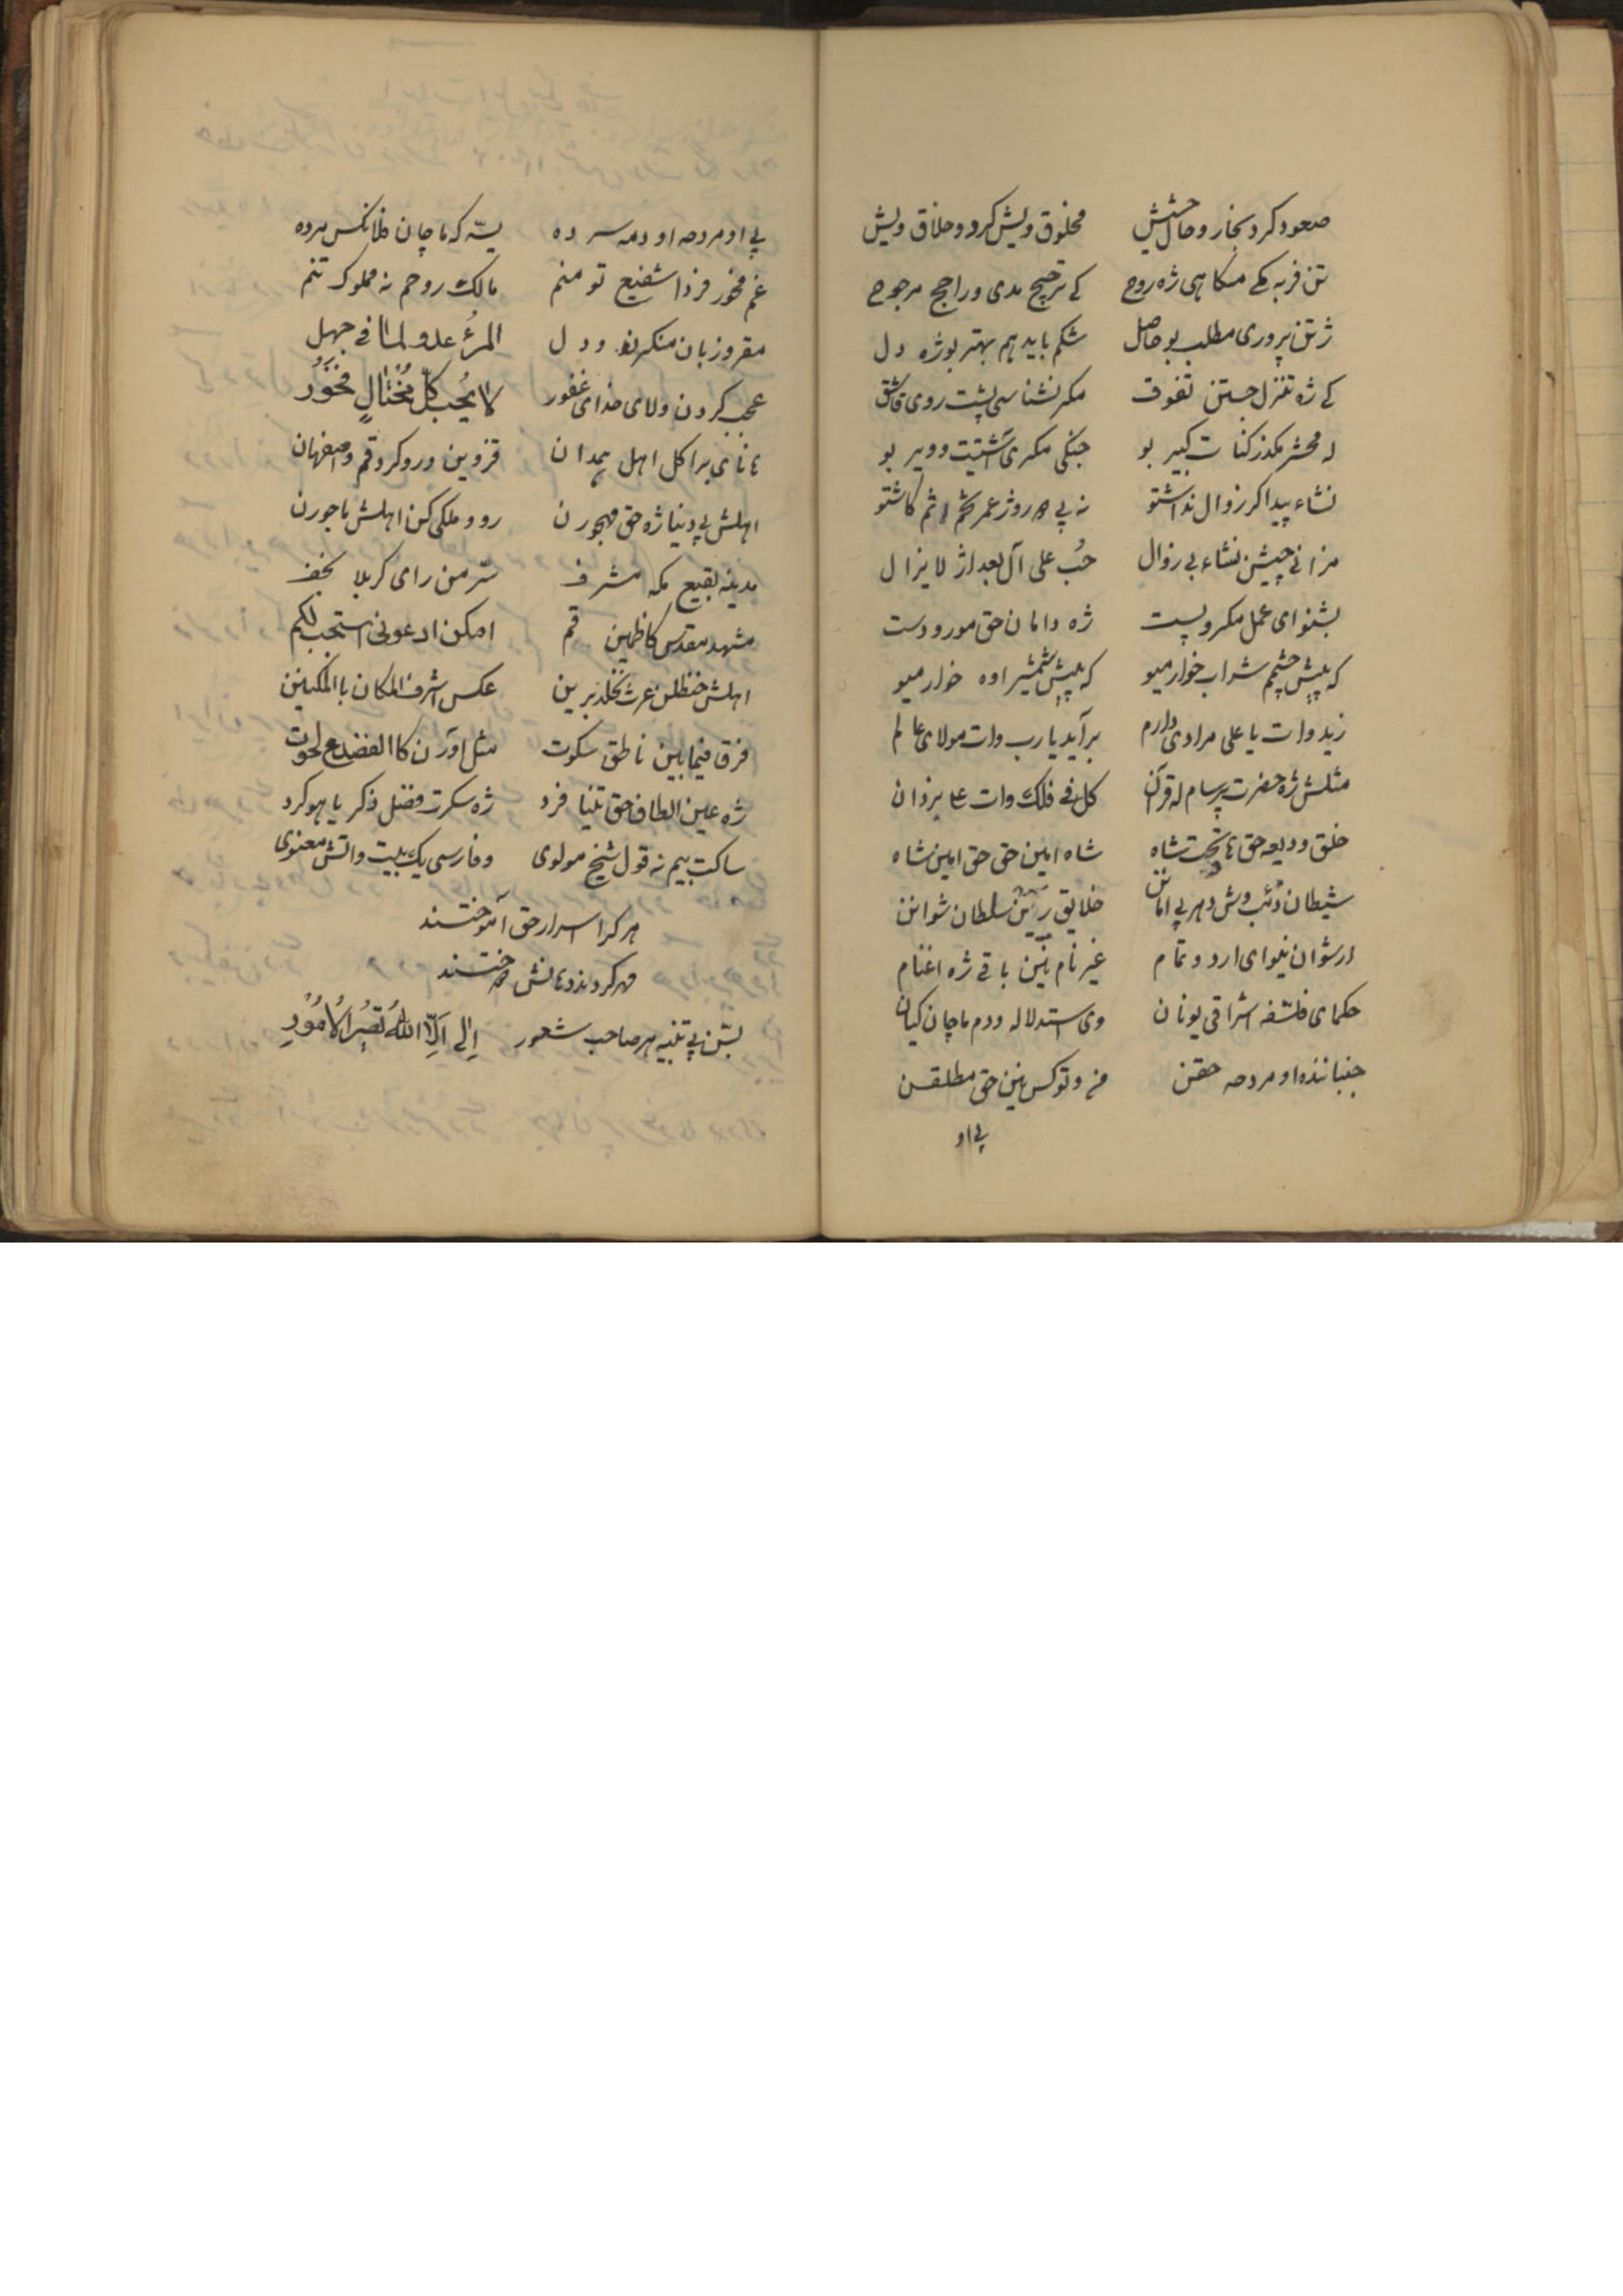 صعود کرد بخار و حال حشیش محلوق ویش کرد و حلاق ویش
تن فربه کی مکاهی ژه روح کی ترجیح مدی و راجح مرجوح
ژ تن پروری مطلب بو حاصل شکم باید هم بهتر بو ژه دل
کی ژه تنزل جستن تفوق مکر نشناسی پشت روی قاشق
له محشر مکذر کنات کبیر بو جنکی مکری آشتیت و ویر بو
نشاء پیدا کر زوال نداشتو نه پی روژ عمر تخم اثم کاشتو
مزانی چیشن نشاء بی زوال حُب علی آل بعد از لا یزال
بشنو ای عمل مکر و پست ژه دامان حق مورو دست
که پیش چشم شراب خوار میو که پیش شمشیر اوه خوار میو
زید وات یا علی مرادی دارم برآید یا رب وات مولای عالم
مثلش ژه حضرت پرسام له قرآن کل فی فلک وات یزدان
خلق ودیعه حق تخت شاه شاه امین حق حق امین شاه
شیطان ذئب وش دهر بی امانن خلایق سلطان شوانن
ار شوان نیوای ارد و تمام غیر نام نین باقی ژه اغنام
حکمای فلسفه اشراقی یونان وی استدلاله ودم ماچان کیان
جنبانندە او مردمه حقن من و تو کس نین حق مطلقن
پی او
پی او مردمه او دمه سرده یسّه که ماچان فلانکس مرده
غم مخور فردا شفیع تو منم مالک روحم نه مملوک تنم
مقر و زبان منکر و دل المرءُ عدو لما فی جهل
عجب کردن ولای خدای غفور لا یُحب کلّ مُختالٍ فخورُ
برا کل اهل همدان قزوین ورو کرد قم و اصفهان
اهلش پی دنیا ژه حق مهجورن رو و ملکی کن اهلش ماجورن
مدینه بقیع مکه مشرف سرّ من رای کربلا نجف
مشهد مقدس کاظمین قم امکن ادعونی استجب لکم
اهلش حنظلن عرث نخلد برین عکس اشرف المکان با المکین
فرق فیما بین ناطق سکوت مثل اورن کا الضفدع لحوت
ژه عین الطاف حق تنیا فرد ژه سکرت فضل ذکر یا هو کرد
ساکت بیم نه قول شیخ مولوی و فارسی یک بیت واتش معنوی
هر کرا اسرار حق آموختند
مهر کردند و دهانش دوختند
بسّن پی تنبیه هر صاحب شعور اِلی اَلّا اللهِ تَصیرُ الاُمُورِ